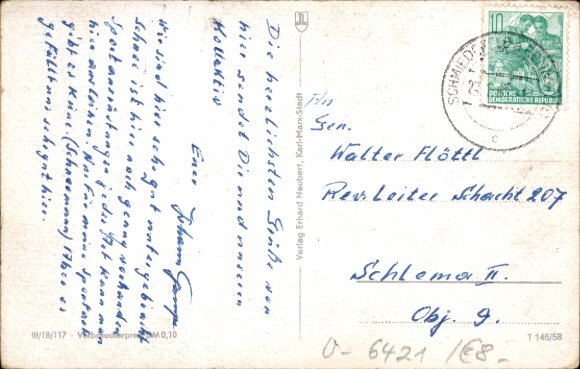 Die herzlichsten Grüße von
hier sendet Dir und unserem
Kollektiv
Euer Johann
Wir sind hier sehr gut untergebracht
Schnee ist hier noch genug vorhanden
Sportausrüstungen jeder Art kann man
hier ausleihen. Nur für meine Sportart
gibt es keine. (Schneemann) Aber es
gefällt uns sehr gut hier.
Verlag Erhard Neubert, Karl-Marx-Stadt
An
Gen.
Walter Flöttl
Rev. Leiter Schacht 207
Schlema II.
Obj. 9.
10
DEUTSCHE
DEMOKRATISCHE REPUBLIK
SCHMIEDEFELD
c
III/18/117 · Verbraucherpreis DM 0,10
T 146/58
6421 /€8-